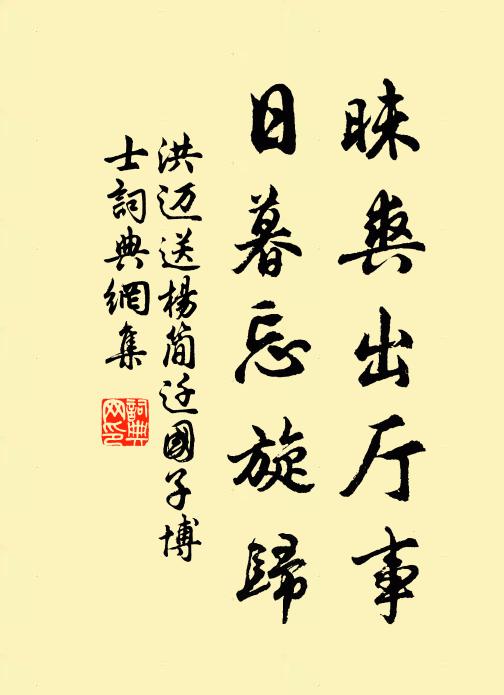 昧爽出厅事
日暮忘旋歸
洪迈送楊简迁國子博
士詞典網集
詞典
网印